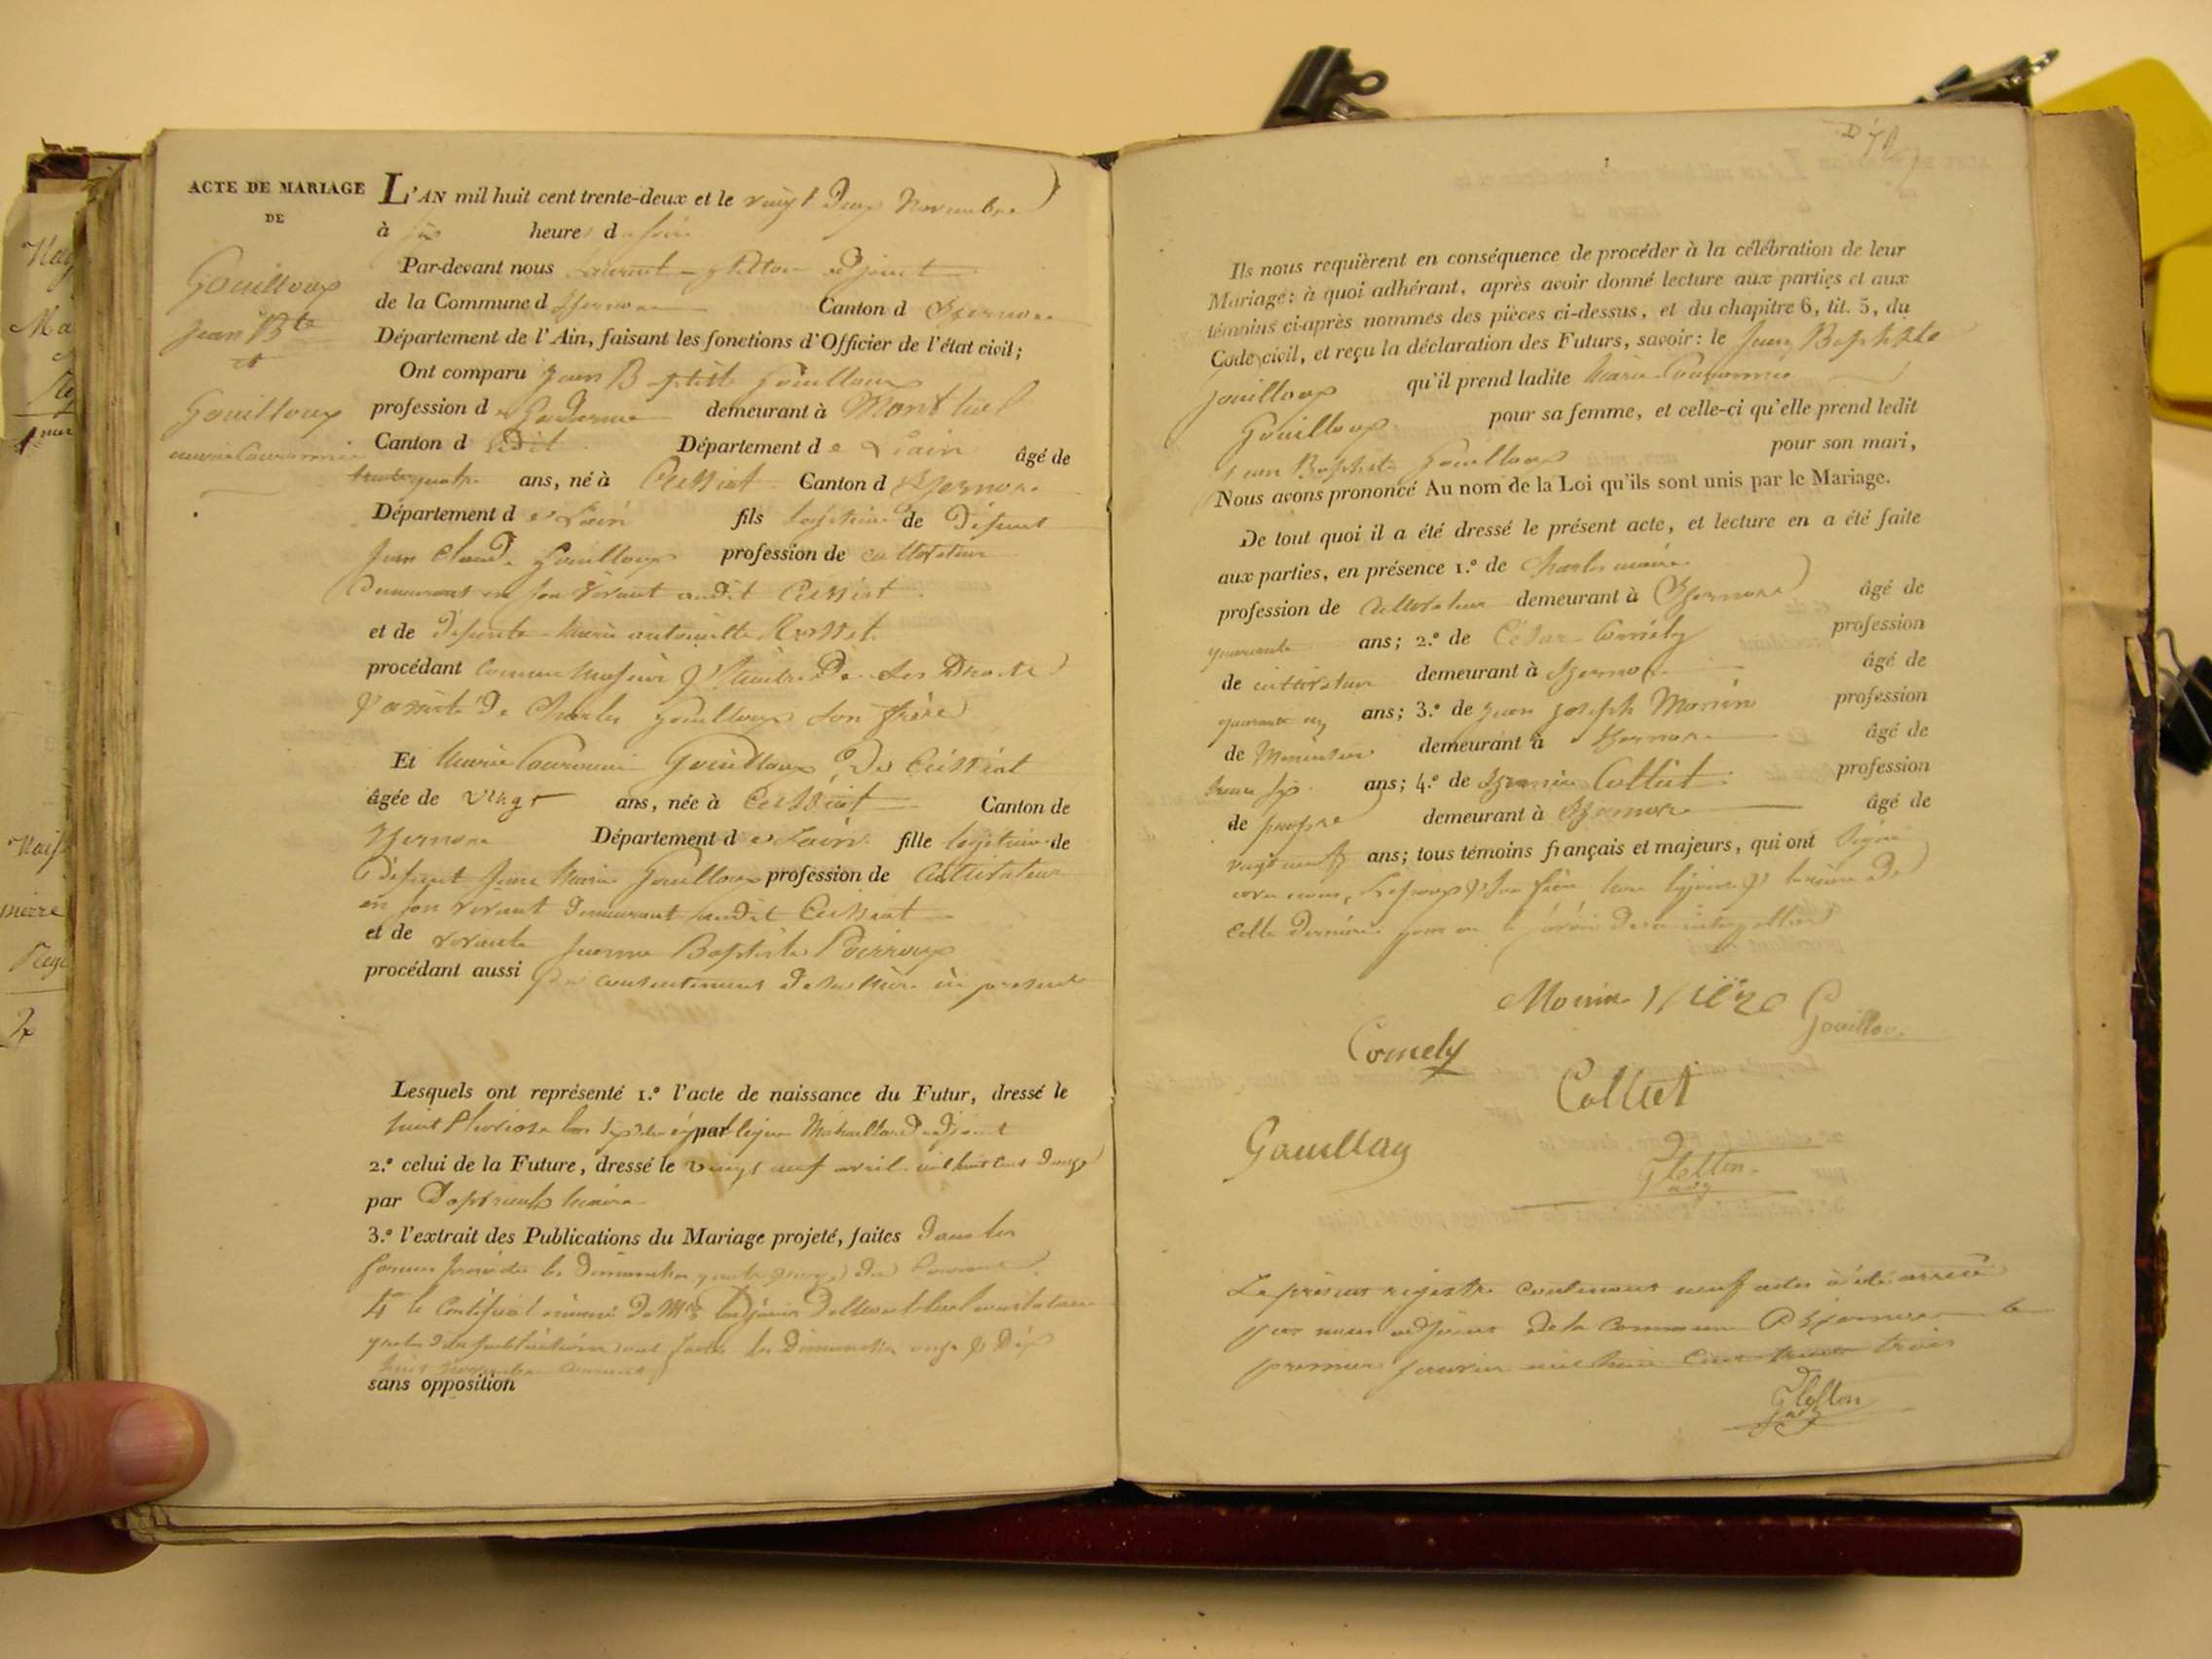 ACTE DE MARIAGE
DE
Gouilloux
Jean Bte
et
Gouilloux
marie Couronnée
L'AN mil huit cent trente-deux et le vingt deux Novembre
à six heures du soir
Par-devant nous Laurent adjoint
de la Commune d'Izernore Canton d'Izernore
Département de l'Ain, faisant les fonctions d'Officier de l'état civil;
Ont comparu Jean Baptiste Gouilloux
profession de Gendarme demeurant à Montluel
Canton dudit Département de L'ain âgé de
trente quatre ans, né à Ceissiat Canton d'Izernore
Département de L'ain fils légitime de défunt
Jean Claude Gouilloux profession de cultivateur
demeurant en son vivant audit Ceissiat
et de défunte Marie antoinette Rosset
procédant comme Majeur & Maître De ses Droits
& assisté De Charles Gouilloux son frère
Et Marie Couronnée Gouilloux De Ceissiat
âgée de vingt ans, née à Ceissiat Canton de
Izernore Département de L'ain fille légitime de
Défunt Jean Marie Gouilloux profession de Cultivateur
en son vivant demeurant audit Ceissiat
et de vivante Jeanne Baptiste Poirroux
procédant aussi du consentement de sa Mère ici présente
Lesquels ont représenté 1.º l'acte de naissance du Futur, dressé le
huit Pluviose an Six par Maillard adjoint
2.º celui de la Future, dressé le vingt neuf avril mil huit cent douze
par maire
3.º l'extrait des Publications du Mariage projeté, faites dans les
formes les dimanches quatre & onze du Courant
4º le Certificat de Mr l'adjoint De Montluel
que les dites publications ont faites les dimanches onze & Dix
huit novembre courant
sans opposition
Ils nous requièrent en conséquence de procéder à la célébration de leur
Mariage: à quoi adhérant, après avoir donné lecture aux parties et aux
témoins ci-après nommés des pièces ci-dessus, et du chapitre 6, tit. 5, du
Code civil, et reçu la déclaration des Futurs, savoir: le Jean Baptiste
Gouilloux qu'il prend ladite Marie Couronnée
Gouilloux pour sa femme, et celle-ci qu'elle prend ledit
Jean Baptiste Gouilloux pour son mari,
Nous avons prononcé Au nom de la Loi qu'ils sont unis par le Mariage.
De tout quoi il a été dressé le présent acte, et lecture en a été faite
aux parties, en présence 1.º de Charles
profession de Cultivateur demeurant à Izernore âgé de
quarante ans; 2.º de César Comély profession
de cultivateur demeurant à Izernore âgé de
quarante ans; 3.º de Jean Joseph Monin profession
de Menuisier demeurant à Izernore âgé de
trente six ans; 4.º de Colliet profession
de demeurant à Izernore âgé de
vingt neuf ans; tous témoins français et majeurs, qui ont signé
avec nous, L'époux & son frère & la mère De
Cette dernière pour ne le savoir De ce interpellée
Monin
Gouillou
Comely
Colliet
Gouilloux
adj
Le présent registre contenant neuf actes a été arrêté
par nous adjoint de la commune D'Izernore le
premier janvier mil huit Cent trente trois
adj